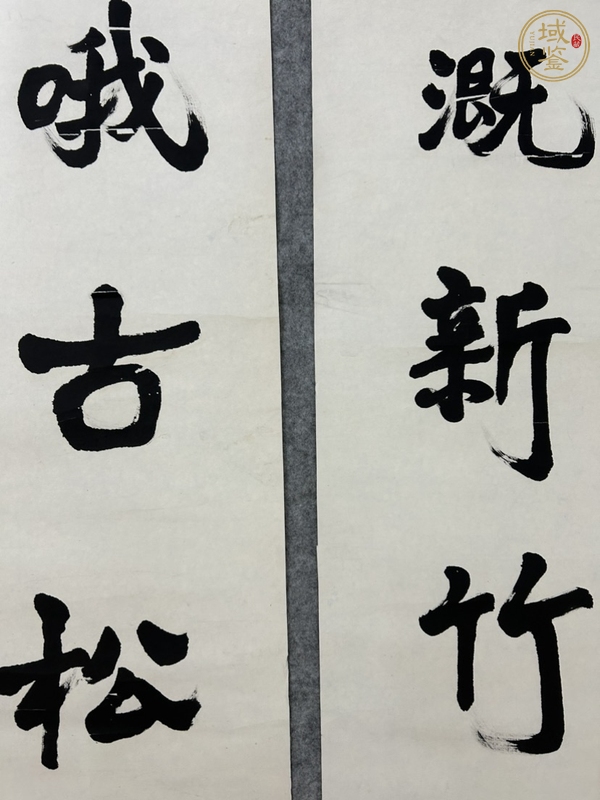 溉新竹
哦古松
域鉴